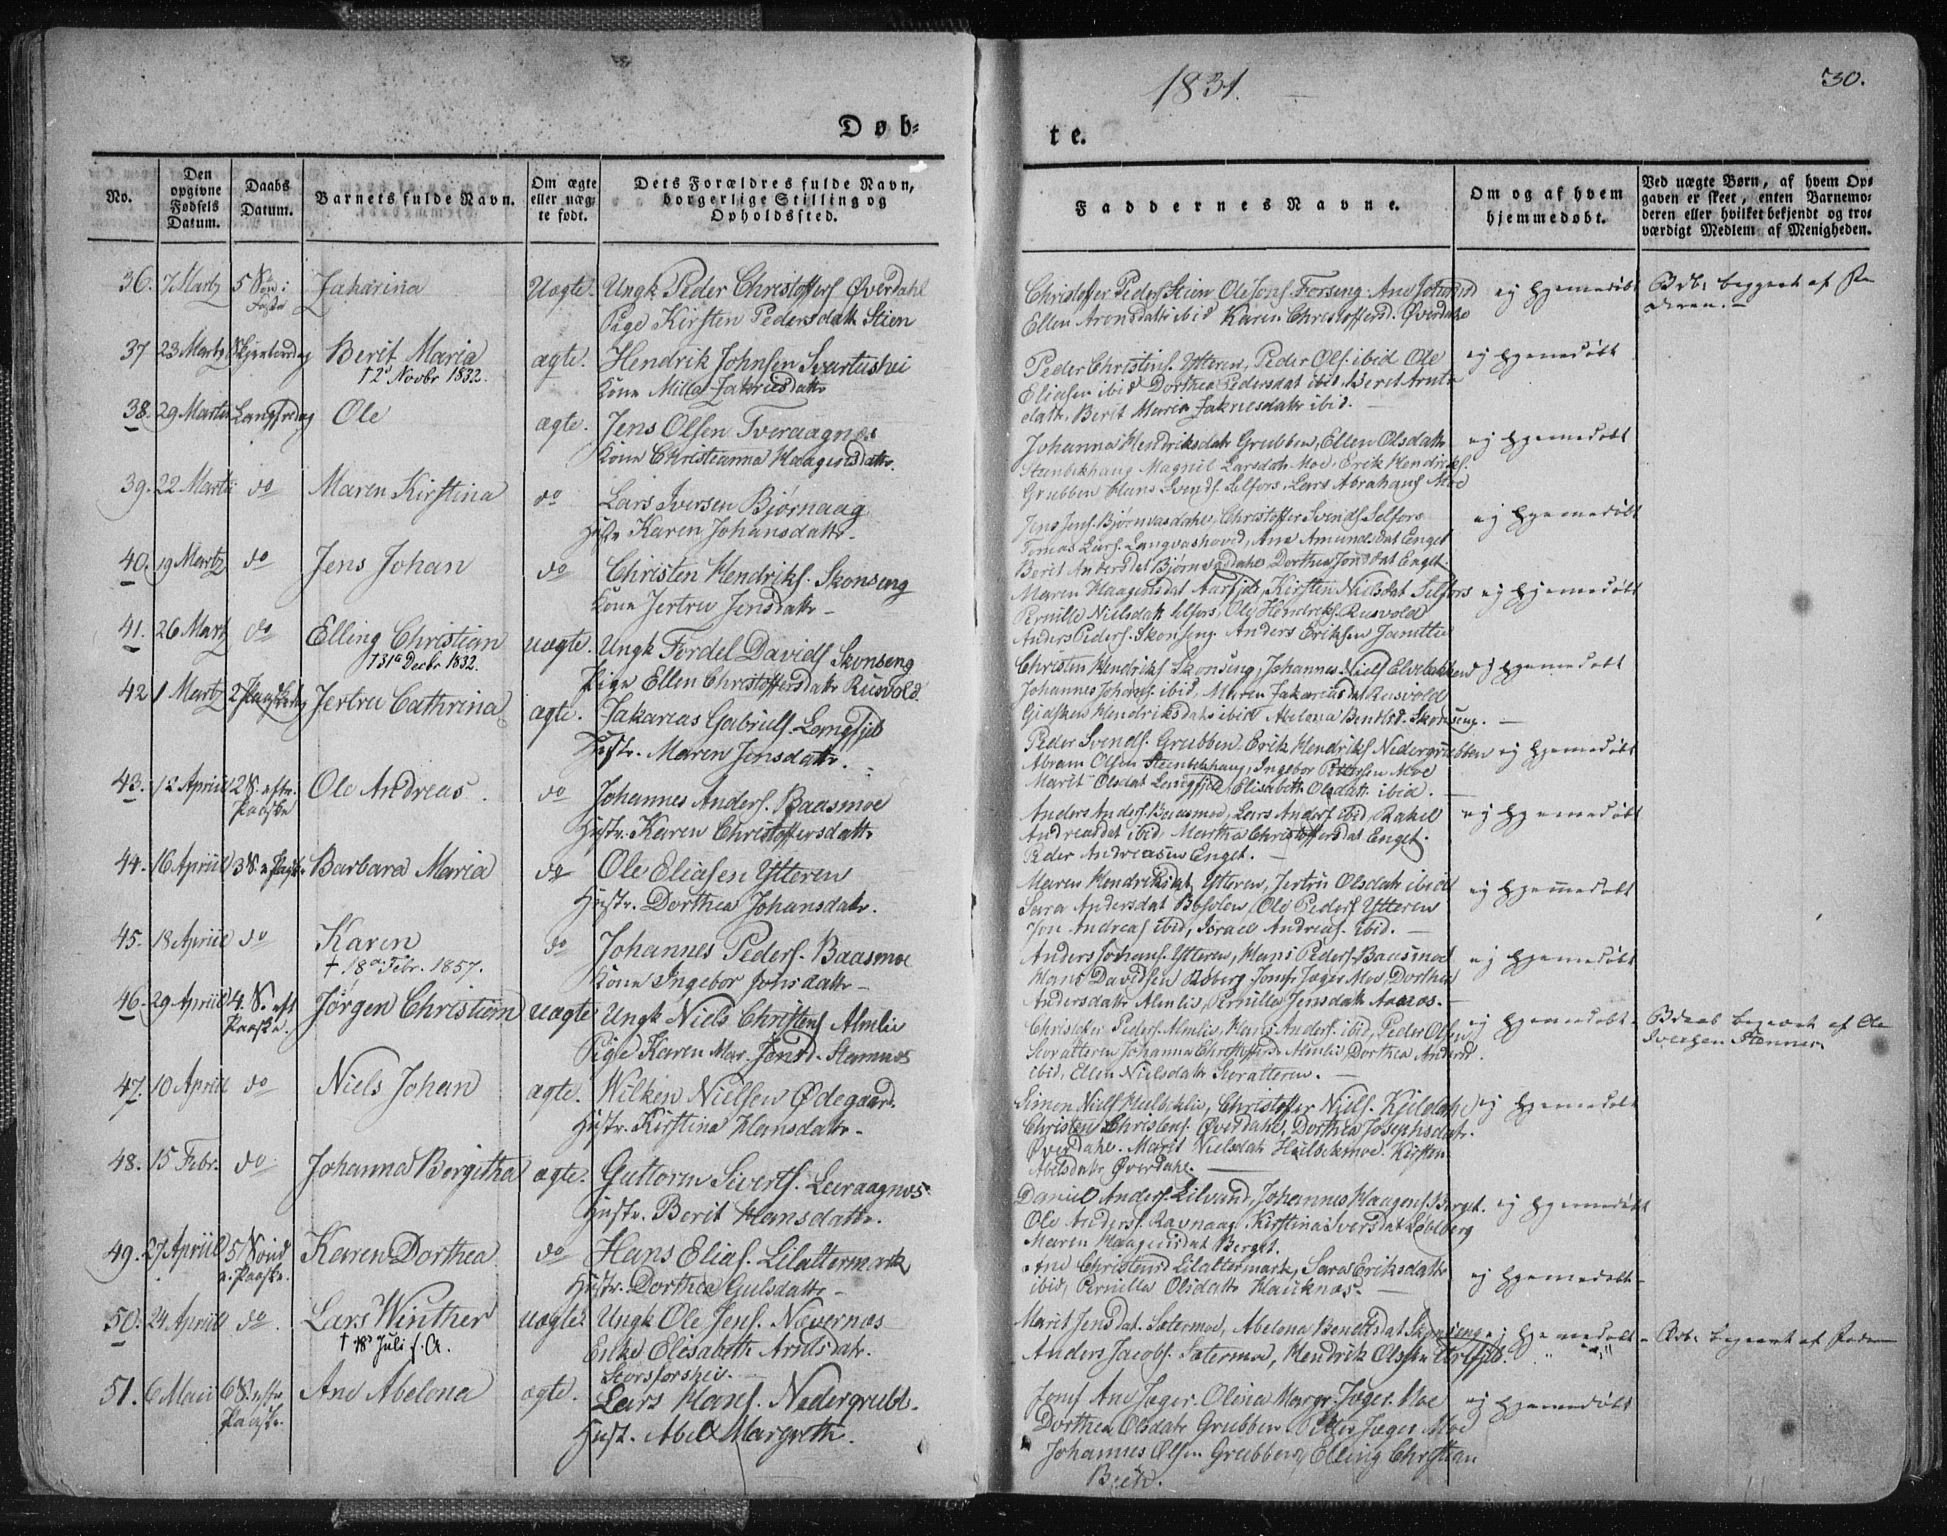 1831.
30.
Døb=
te.
No.
Den opgivne Fødsels Datum.
Daabs Datum.
Barnets fulde Navn.
Om ægte eller uægte født.
Dets Forældres fulde Navn, borgerlige Stilling og Opholdssted.
Faddernes Navne.
Om og af hvem hjemmedøbt.
Ved uægte Børn, af hvem Opgaven er skeet, enten Barnemoderen eller hvilket bekjendt og troværdigt Medlem af Menigheden.
36. 7 Martz 5 Søn: i Faste Zakarina Uægte. Ungk Peder Christoffers Øverdahl
Pige Kirsten Pedersdattr Stien
Christoffer Peders Stien Ole Jons Forseng
Ellen Aronsdattr ibid Karen Christoffersd. Øverdahl
ej hjemedøbt
37 23 Martz Skjertorsdag Berit Maria ægte. Hendrik Johnsen Svartishei
† 2 Novbr 1832.
Kone Milla Zakriasdattr
Peder Christens. Ytteren, Peder Ols. ibid Ole
Eliasen ibid Dorthea Pedersdat ibid, Berit Arnts
datr. Berit Maria Zakriesdatr ibid.
ej hjemedøbt
38. 29 Martz Langfredag Ole ægte. Jens Olsen Tveraagnes
Kone Christianna Haagensdattr.
Johanna Hendriksdatr Grubben, Ellen Olsdattr
Steenbekhaug Magnil Larsdatr Moe, Erik Hendriks.
Grubben Hans Svends. Selfors, Lars Abrahams Moe
ej hjemedøbt
39. 22 Martz do Maren Kirstina do Lars Iversen Bjørnaag
Hustr Karen Johansdattr.
Jens Jens. Bjørnvasdahl, Christoffer Svends Selfors
Tomas Lars. Langvashoved, Ane Amundsdat Enget
Berit Andersdat Bjørnvasdahl Dorthea Jonsdat Enget.
ej hjemedøbt
40. 19 Martz do Jens Johan do Christen Hendriks. Skonseng
Kone Jertru Jensdattr
Maren Haagensdat Aarsfjeld, Kirsten Nielsdat Selfors
Pernille Nielsdatr Selfors, Ole Hendriks Rusvold
Anders Peders. Skonseng Anders Eriksen Jamtlie
ej hjemedøbt
41. 26 Martz do Elling Christian uægte. Ungk Fordel Davids Skonseng
† 31te Decbr 1832.
Pige Ellen Christoffersdattr Rusvold.
Christen Hendriks Skonseng, Johannes Niels Elvebakken
Johannes Johans. ibid, Maren Zakariasdat Rusvold
Hendriksdat ibid Abelona Skonseng.
ej hjemedøbt
42 1 Martz 2 Paaskedag Jertru Cathrina ægte. Zakarias Gabriels. Langfjeld
Hustr. Maren Jensdattr.
Peder Svends. Grubben, Erik Hendriks Nedergrubben
Abram Olsen Steenbekhaug, Ingebor Pettersen Moe
Marit Olsdat Langfjeld, Elisabeth Olsdattr ibid.
ej hjemedøbt
43. 12 Apriil 2 S. eftr. Paaske Ole Andreas do Johannes Anders. Baasmoe
Hustr. Karen Christoffersdattr
Anders Anders. Baasmoe, Lars Anders ibid, Rakel
Andreasdat ibid, Martha Christoffersdat Enget.
Peder Andreasen Enget.
ej hjemedøbt
44. 16 Apriil 3 S. e Paask. Barbara Maria do Ole Eliasen Ytteren
Hustr. Dorthea Johansdatr.
Maren Hendriksdat Ytteren, Jertru Olsdatr ibid
Sara Andersdat Ole Peders Ytteren
Jon Andreas ibid, Israel Andreas. ibid.
ej hjemmedøbt
45. 18 Apriil do Karen do Johannes Peders. Baasmoe
† 18de Febr. 1857.
Kone Ingebor Jonsdattr
Anders Johans. Ytteren, Hans Peders. Baasmoe
Hans Davidsen Røberg, Jomf. Jager Moe, Dorthea
Andersdatr Almlie, Pernilla Jensdattr
ej hjemedøbt
46. 29 Apriil 4. S. eft Paaske. Jørgen Christian uægte Ungk Niels Christens Almlie
Pige Karen Mar. Jonsd. Stamnes
Christofer Peders. Almlie, Hans Anders. ibid, Peder Olsen
Storatteren Johanna Christoffersd Almlie, Dorthea Andersd
ibid, Ellen Nielsdatr Storatteren.
ej hjemedøbt. begjært af Ole
Iversen Stenner
47. 10 Apriil do Niels Johan ægte. Wilken Nielsen Ødegaard.
Hustr. Kirstina Hansdatr.
Simon Niels Christoffer Niels. Kieldahl
Christen Christens. Øverdahl, Dorthea Josephsdatr.
Øverdahl. Marit Nielsdatr Kirsten
Abelsdatr Øverdahl.
ej hjemedøbt
48. 15 Febr. do Johanna Bergitha ægte. Guttorm Siverts. Leiraagnes
Hustr. Berit Hansdattr.
Daniel Anders. Lilvand, Johannes Haagens Berget.
Ole Anders. Ravnaag, Kirstina Iversdat
Maren Haagensdat Berget.
ej hjemedøbt
49. 27 Apriil 5 Sønd e. Paaske. Karen Dorthea do Hans Elias. Lilaltermark
Hustr. Dorthea Gulsdattr
Ane Christensd Lilaltermark, Sara Eriksdattr
ibid, Pernilla Olsdattr Hauknæs.
ej hjemedøbt
50. 24 Apriil do. Lars Winther uægte. Ungk Ole Jens. Nævernæs
† 18de Juli s. A.
Enke Elisabeth Arntsdatr.
Storforshei.
Marit Jensdat. Sætermoe, Abelona Bendtsdat Skonseng
Anders Jacobs. Sætermoe, Hendrik Olssen
ej hjemedøbt begjært af
51. 6 Maii 6 S. eftr Paaske. Ane Abelona ægte. Lars Hans. Nedergrubb.
Hust. Abel Margreth.
Jomf Ane Jæger. Olina Margr. Jæger. Moe
Dorthea Olsdatr Grubben Petter Jæger Moe
Johannes Olsen Grubben, Elling Christian
Bech.
ej hjemedøbt